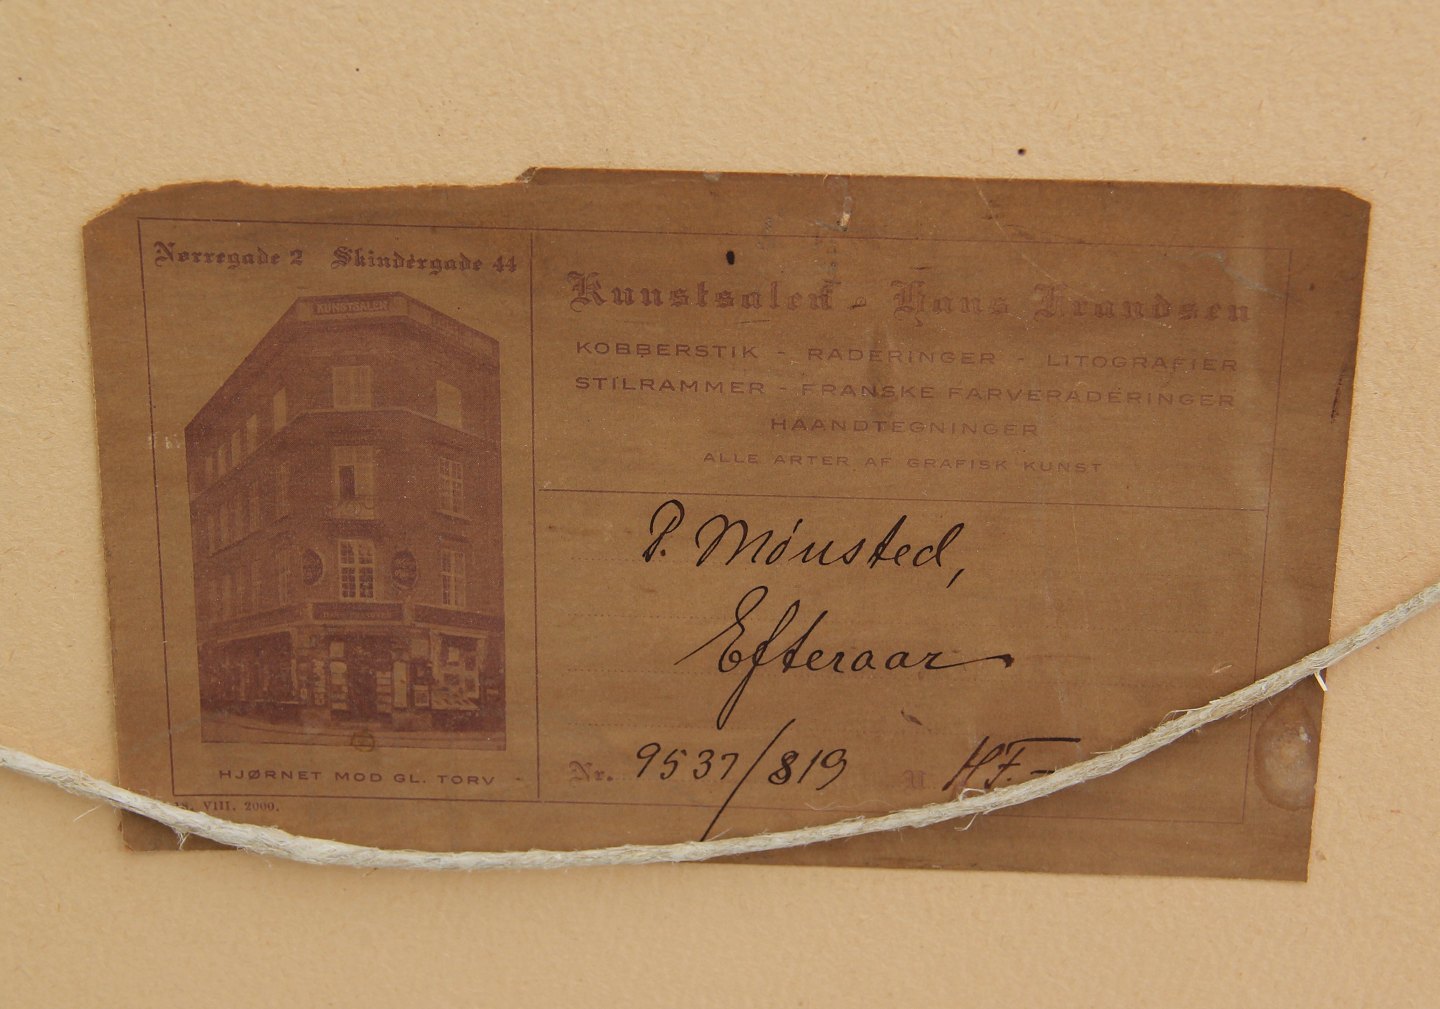 Nørregade 2 Skindergade 44
KUNSTSALEN
HJØRNET MOD GL. TORV
VIII. 2000.
Kunstsalen - Hans Frandsen
KOBBERSTIK - RADERINGER - LITOGRAFIER
STILRAMMER - FRANSKE FARVERADERINGER
HAANDTEGNINGER
ALLE ARTER AF GRAFISK KUNST
P. Mønsted,
Efteraar
Nr. 9537/819 HF.-